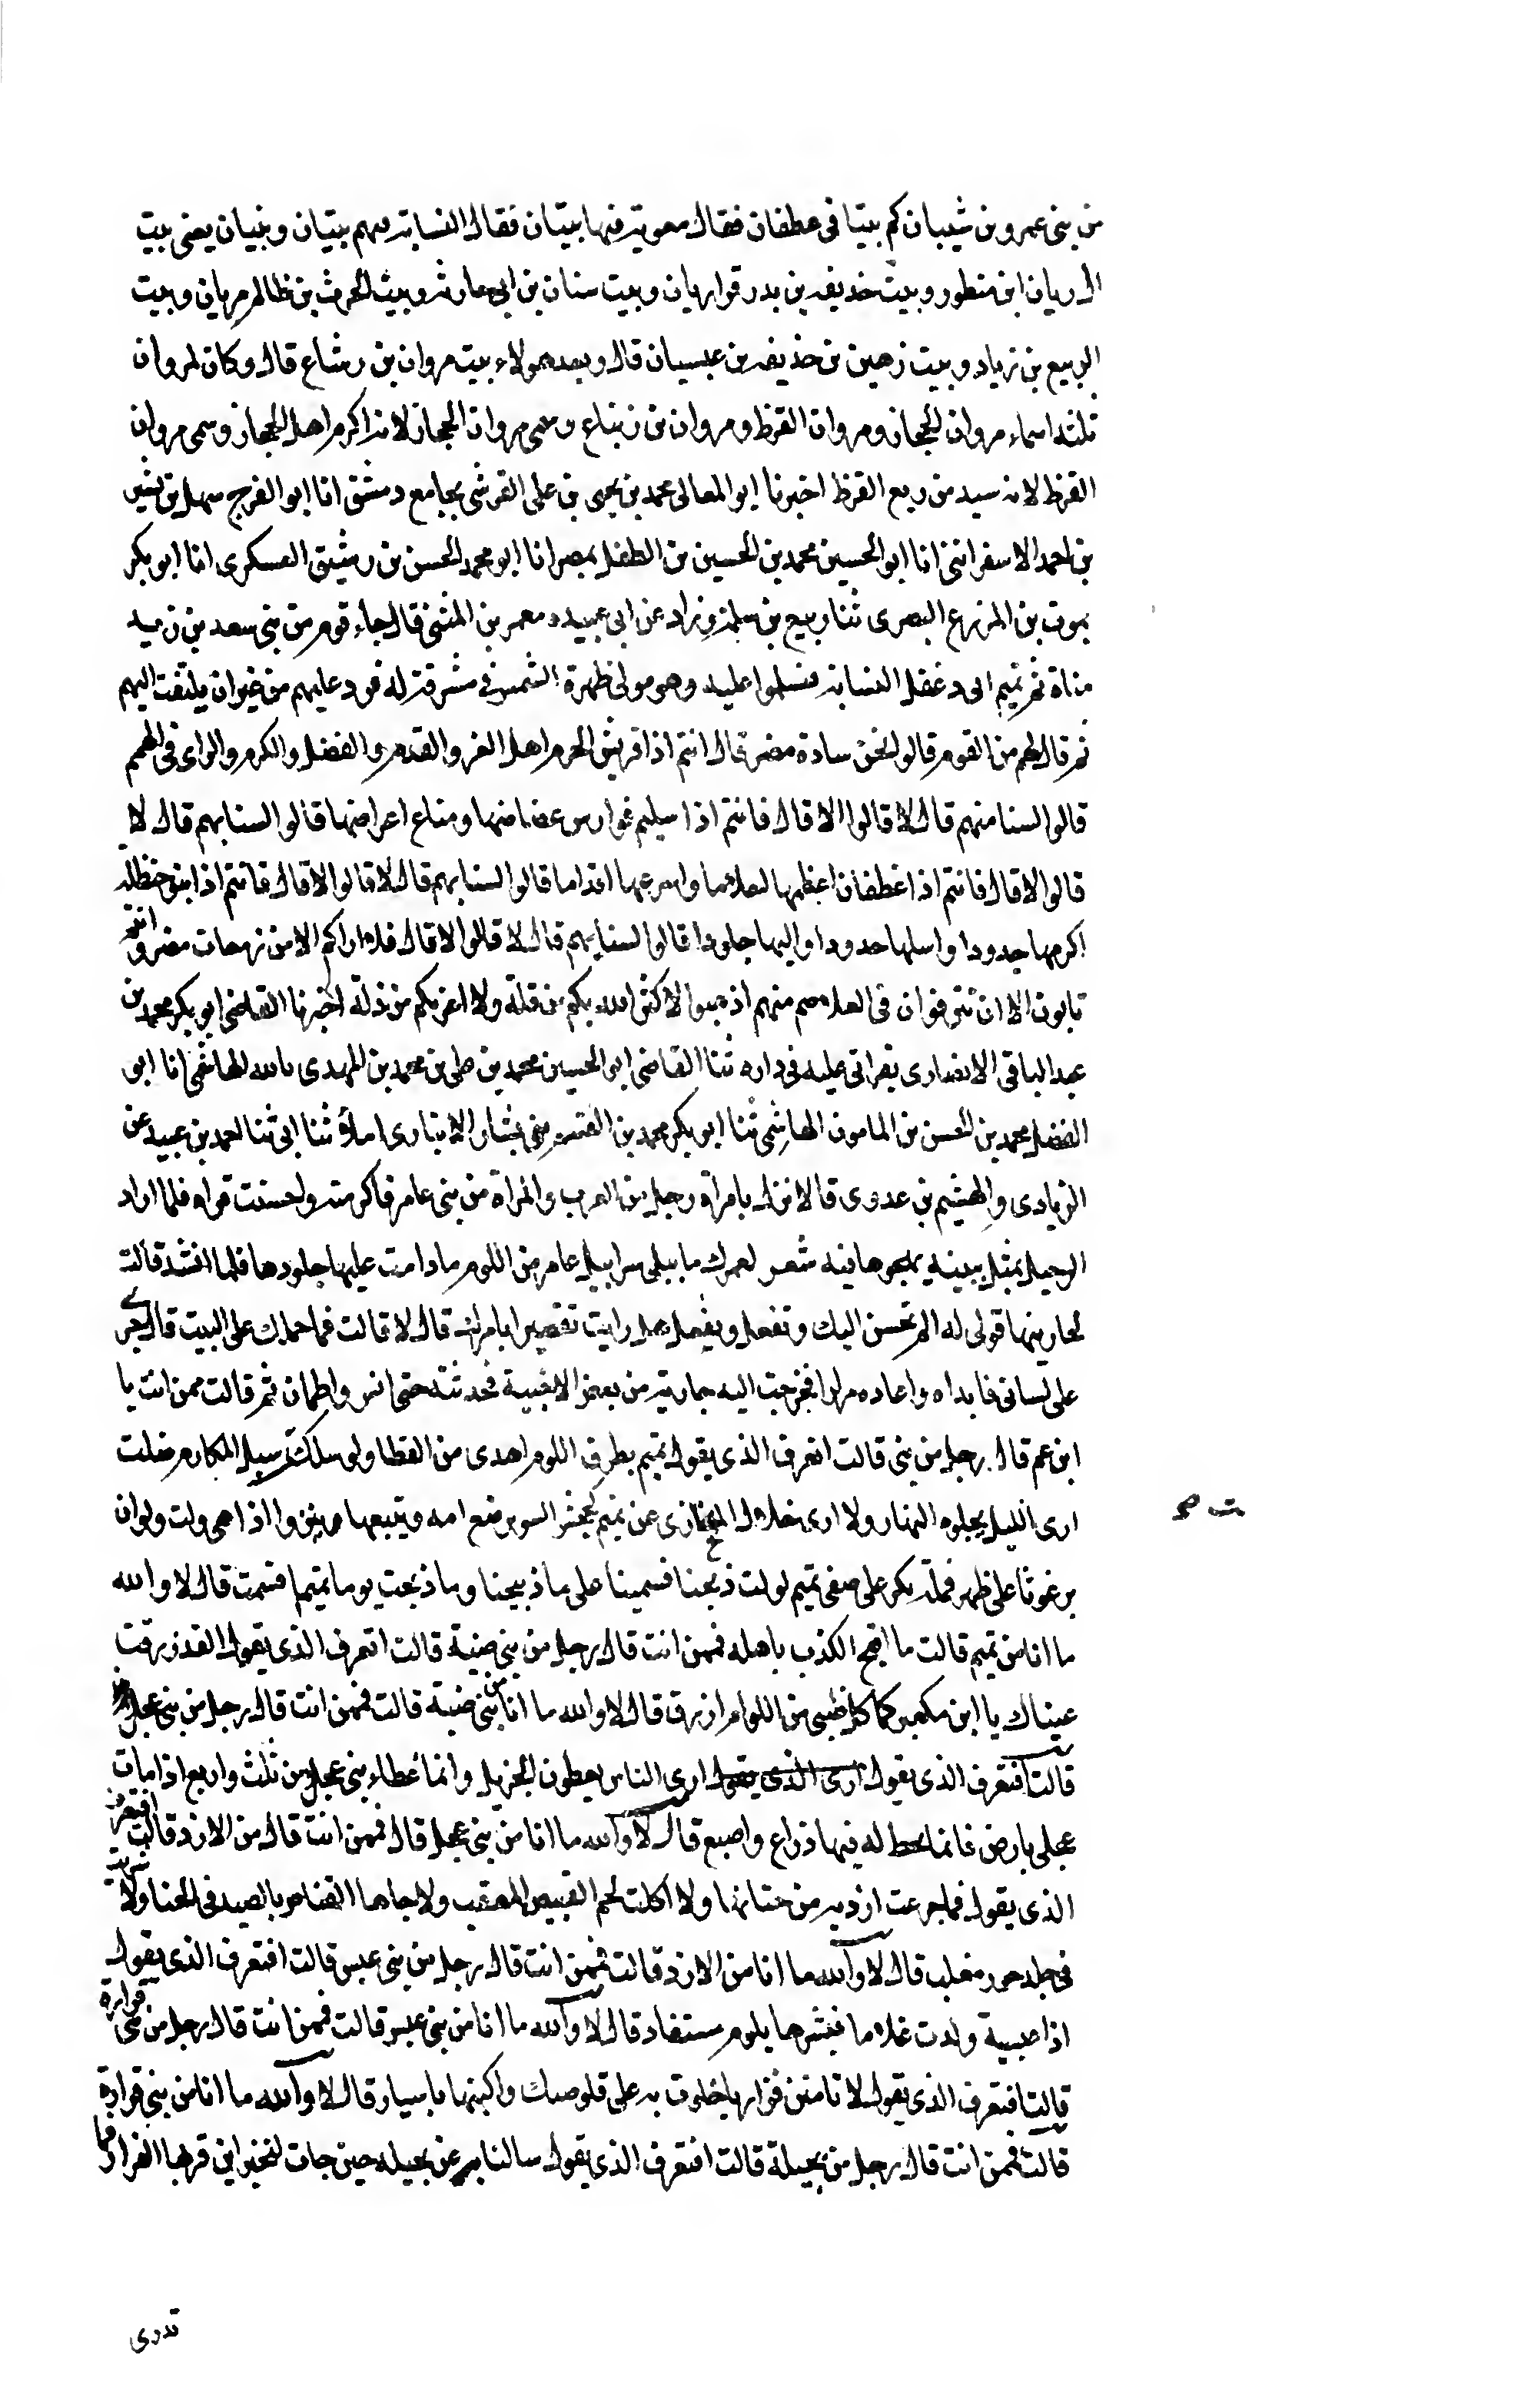 من بنى عمرو بن شيبان كم بيتا فى عطفان فقال معوية فيها بيتان فقال النسابة فهم بيتيان وبنيان يعنى بيت
ال ريان ابن منظور وبيت حذيفه بن بدر قواريان وبيت سنان بن ابى حارثه وبيت الحرث بن ظالم مريان وبيت
الربيع بن زياد وبيت زهير بن حذيفه بن عبسيان قال وبعد هولاء بيت مروان بن رساع قال وكان لمروان
ثلثه اسماء مروان الحجاز ومروان القرظ ومروان بن زنباع وسمى مروان الحجاز لانه اكرم اهل الحجاز وسمى مروان
القرظ لانه سيد من ربع القرظ اخبرنا ابو المعالى محمد بن يحيى بن على القرشى بجامع دمشق انا ابو الفرج سهل بن بشر
بن احمد الاسفراينى انا ابو الحسين محمد بن الحسين بن الطفل بمصر انا ابو محمد الحسن بن رشيق العسكرى انا ابو بكر
يموت بن المزرع البصرى ثنا ربيع بن سلمة وزاد عن ابى عبيده معمر بن المثنى قال جاء قوم من بنى سعد بن زيد
مناة ثم تميم الى دغفل النسابة فسلموا عليه وهو مولى ظهره الشمس فى مشرقة له فرد عليهم من غير ان يلتفت اليهم
ثم قال لهم من القوم قالوا نحن سادة مضر قال انتم اذا قريش الحرم اهل العز والقدم والفضل والكرم والراى فى الهمم
قالوا لسنا منهم قال لا قالوا الا قال فانتم اذا سليم فوارس عضاضها ومناع اعراضها قالوا لسنا بهم قال لا
قالوا لا قال فانتم اذا غطفان اعظمها لعلاما واسرعها اقداما قالوا لسنا بهم قال لا قالوا لا قال فانتم اذا بنو حنظله
اكرمها جدودا واسلها حدودا واليها جلودا قالوا لسنا بهم قال لا قالوا لا قال فلا اراكم الا من زمعات مضر وانتم
تابون الا ان تترقوا فى العلا صم منهم اذهبوا لا كثر الله بكم من قلة ولا اعز بكم من ذلة اخبرنا القاضى ابو بكر محمد بن
عبد الباقى الانصارى بقراتى عليه فى داره ثنا القاضى ابو الحسين محمد بن على بن محمد بن المهدى بالله الهاشمى انا ابو
الفضل محمد بن الحسن بن المامون الهاشمى ثنا ابو بكر محمد بن القسم بن بشار الانبارى املأ ثنا ابى ثنا احمد بن عبيد عن
الزيادى والهيثم بن عدوى قالا نزل بامراة رجل من العرب والمراة من بنى عامر فاكرمته واحسنت قراه فلما اراد
الرحيل تمثل ببيت يهجوها فيه شعر لعمرك ما يبلى سرابيل عامر من اللوم ما دامت عليها جلودها فلما انشد قالت
لجاريتها قولى له الم تحسن اليك وتفعل وتفعل هل رايت تقصيرا بامرك قال لا قالت فما حملك على البيت قال جرى
على لسانى فابداه واعاده مرارا فخرجت اليه جارية من بعض الاخبية فحدثته حتى انس واطمان ثم قالت ممن انت يا
ابن عم قال رجل من بنى قالت اتعرف الذى يقول تميم بطرق اللوم اهدى من القطا ولو سلكت سبيل المكارم ضلت
ارى الليل يجلوه النهار ولا ارى خلال المخازى عن تميم كجحش السو يرضع امه ويتبعها مرتين واذا هى ولت ولو ان
برغوثا على ظهر قملة يكر على صفى تميم لولت ذبحنا فسمينا على ما ذبيحنا وما ذبحت يوما تميم فسمت قال لا والله
ما انا من تميم قالت ما اقبح الكذب باهله فممن انت قال رجل من بنى ضبية قالت اتعرف الذى يقول لقد زرقت
عيناك يا ابن مكعبر كما كل ضبى من اللوام ازرق قال لا والله ما انا من بنى ضبة قالت فممن انت قال رجل من بنى عجل
قالت افتعرف الذى يقول ارى الذى يقول ارى الناس يعطون الجزيل وانما عطاء بنى عجل من ثلث واربع اذا مات
عجلى بارض فانما يحط له فيها ذراع واصبع قال لا والله ما انا من بنى عجل قال فممن انت قال من الازد قالت افتعرف
الذى يقول فما جرعت ازديه من ختانها ولا اكلت لحم القنيص المعقب ولا جاها القناص بالصيد فى الخنا ولا شربت
فى جلد حمر معلب قال لا والله ما انا من الازد قالت فممن انت قال رجل من بنى عبس قالت افتعرف الذى يقول
اذا عبسية ولدت غلاما فبشرها بلوم مستفاد قال لا والله ما انا من بنى عبس قالت فممن انت قال رجل من بنى فزارة
قالت افتعرف الذى يقول لا تامنن فزاريا خلوت به على قلوصك واكبتها باسيار قال لا والله ما انا من بنى فزارة
قالت فممن انت قال رجل من بجيلة قالت افتعرف الذى يقول سالنا عن بجيله حين جات لتخبر اين قر بها القرار فما
تدرى